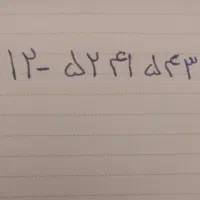 ۱۲-۵۲۴۱۵۴۳